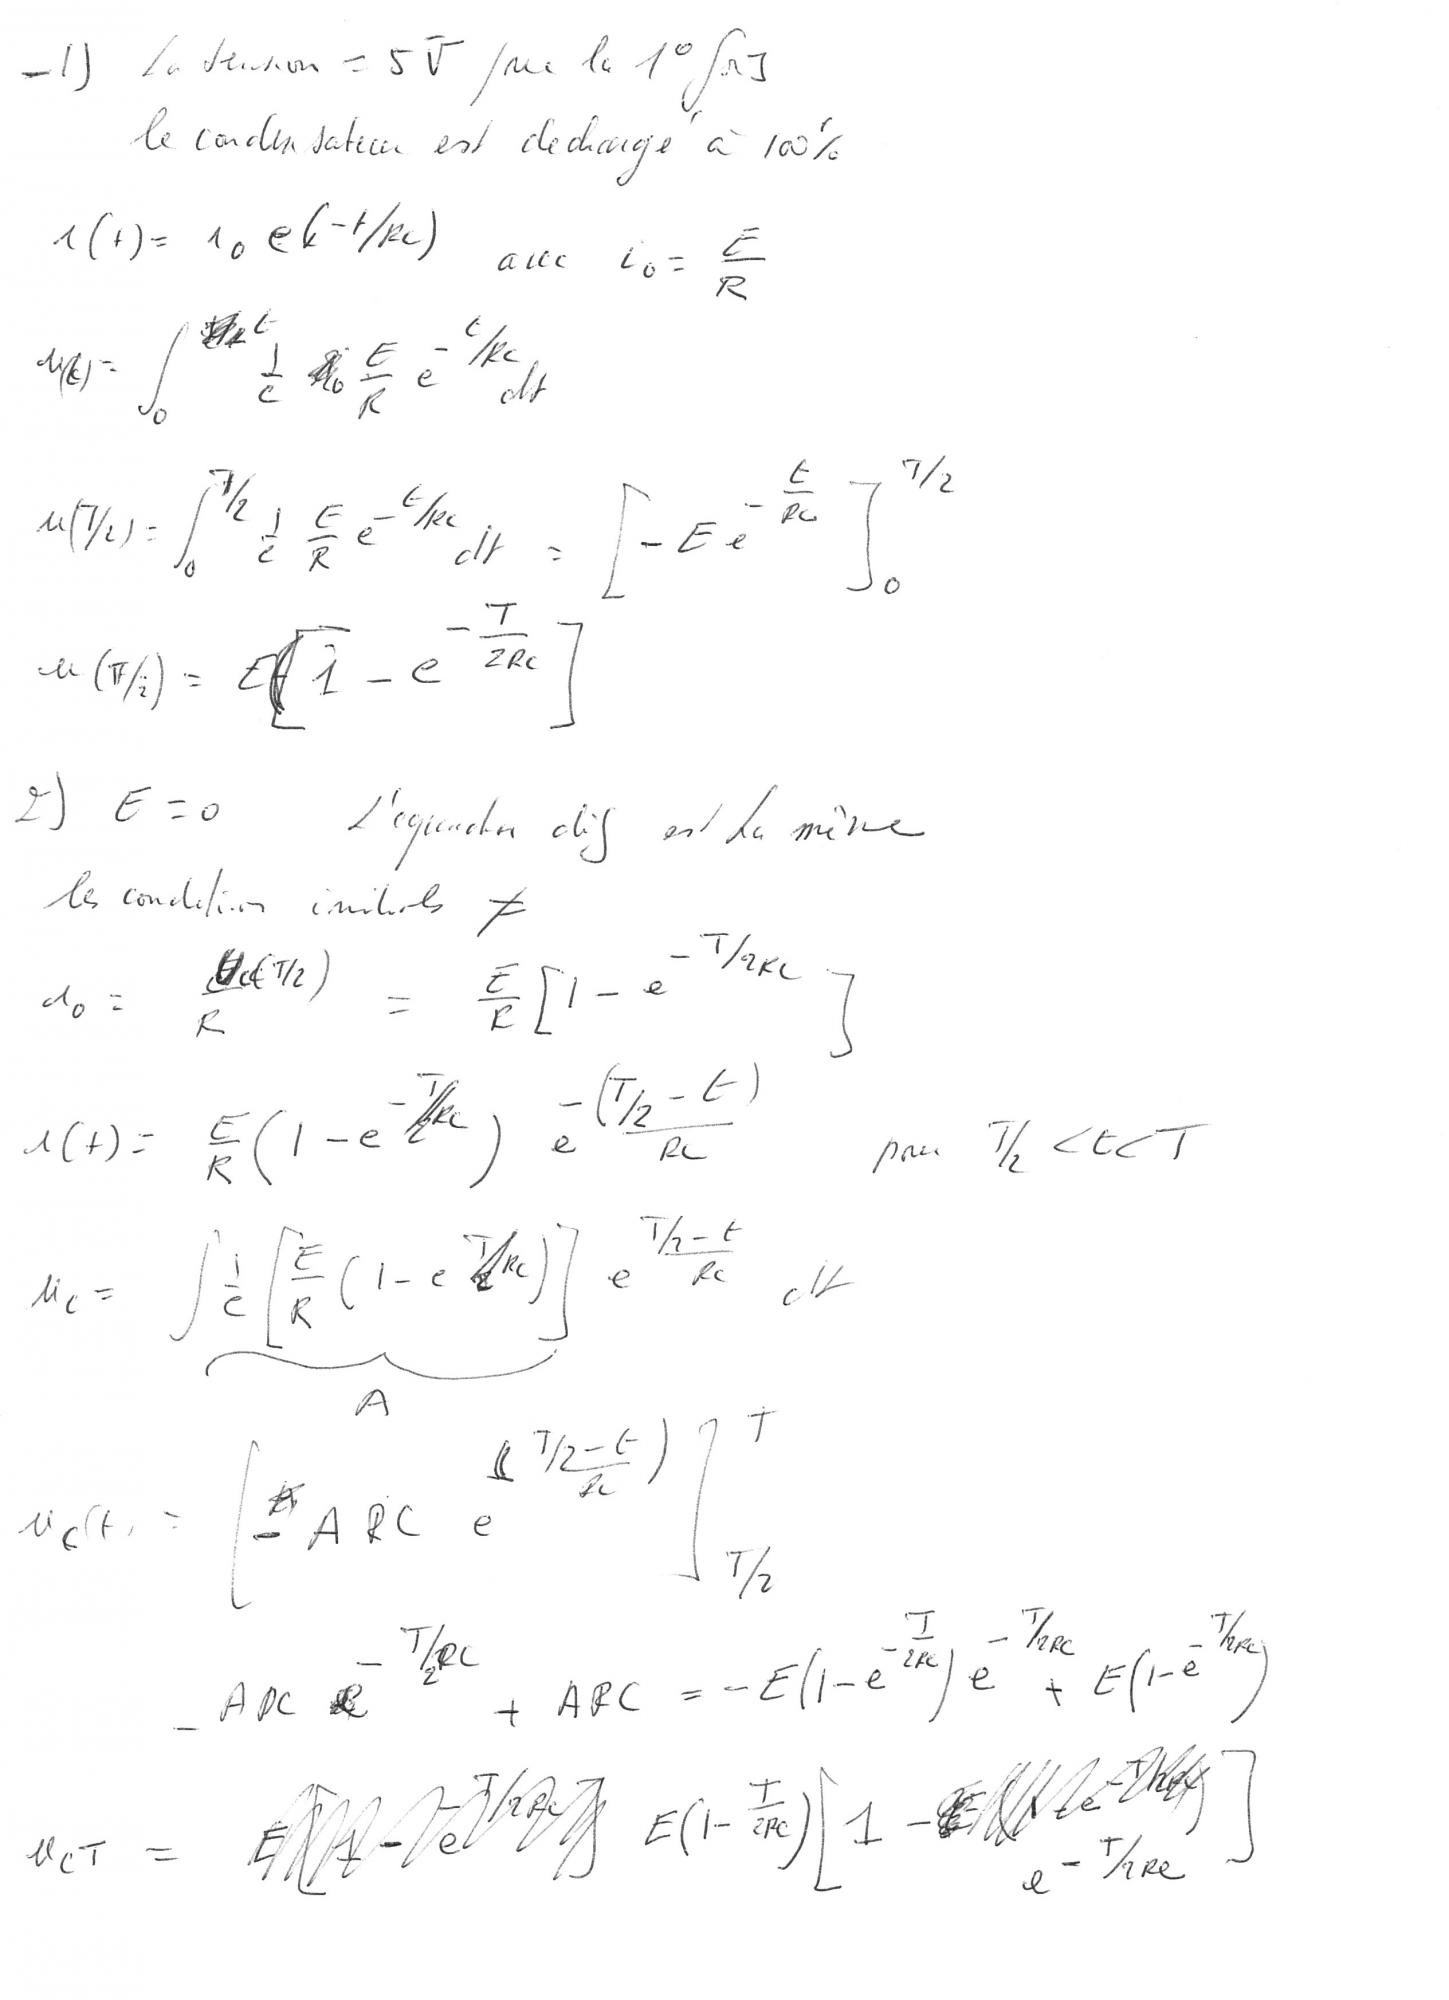 -1) La tension = 5V pour la 1° fois
le condensateur est déchargé à 100%
i(t) = i0 e(-t/RC) avec i0 = E/R
u(t) = ∫_0^t 1/C E/R e^(-t/RC) dt
u(T/2) = ∫_0^(T/2) 1/C E/R e^(-t/RC) dt = [-E e^(-t/RC)]_0^(T/2)
u(T/2) = E[1 - e^(-T/2RC)]
2) E = 0 L'equation dif est la même
les condition initials ≠
i0 = Uc(T/2)/R = E/R [1 - e^(-T/2RC)]
i(t) = E/R (1 - e^(-T/2RC)) e^(-(T/2 - t)/RC) pour T/2 < t < T
uc = ∫ 1/C [E/R (1 - e^(T/2RC))] e^((T/2 - t)/RC) dt
A
uc(t) = [-ARC e^((T/2 - t)/RC)]_(T/2)^T
-ARC e^(-T/2RC) + ARC = -E(1 - e^(-T/2RC)) e^(-T/2RC) + E(1 - e^(-T/2RC))
ucT = E(1 - T/2RC)[1 - e^(-T/2RC)]